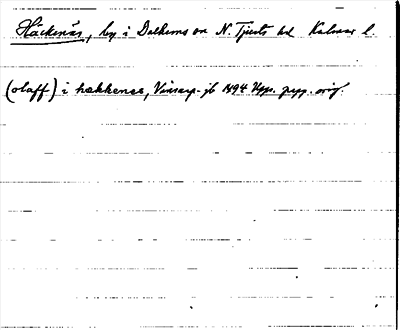 Häckenäs, by i Dalhems sn N. Tjusts hd Kalmar l.
(olaff) i hækkenes, Vinsarp-jb 1494 Upps. perg. orig.